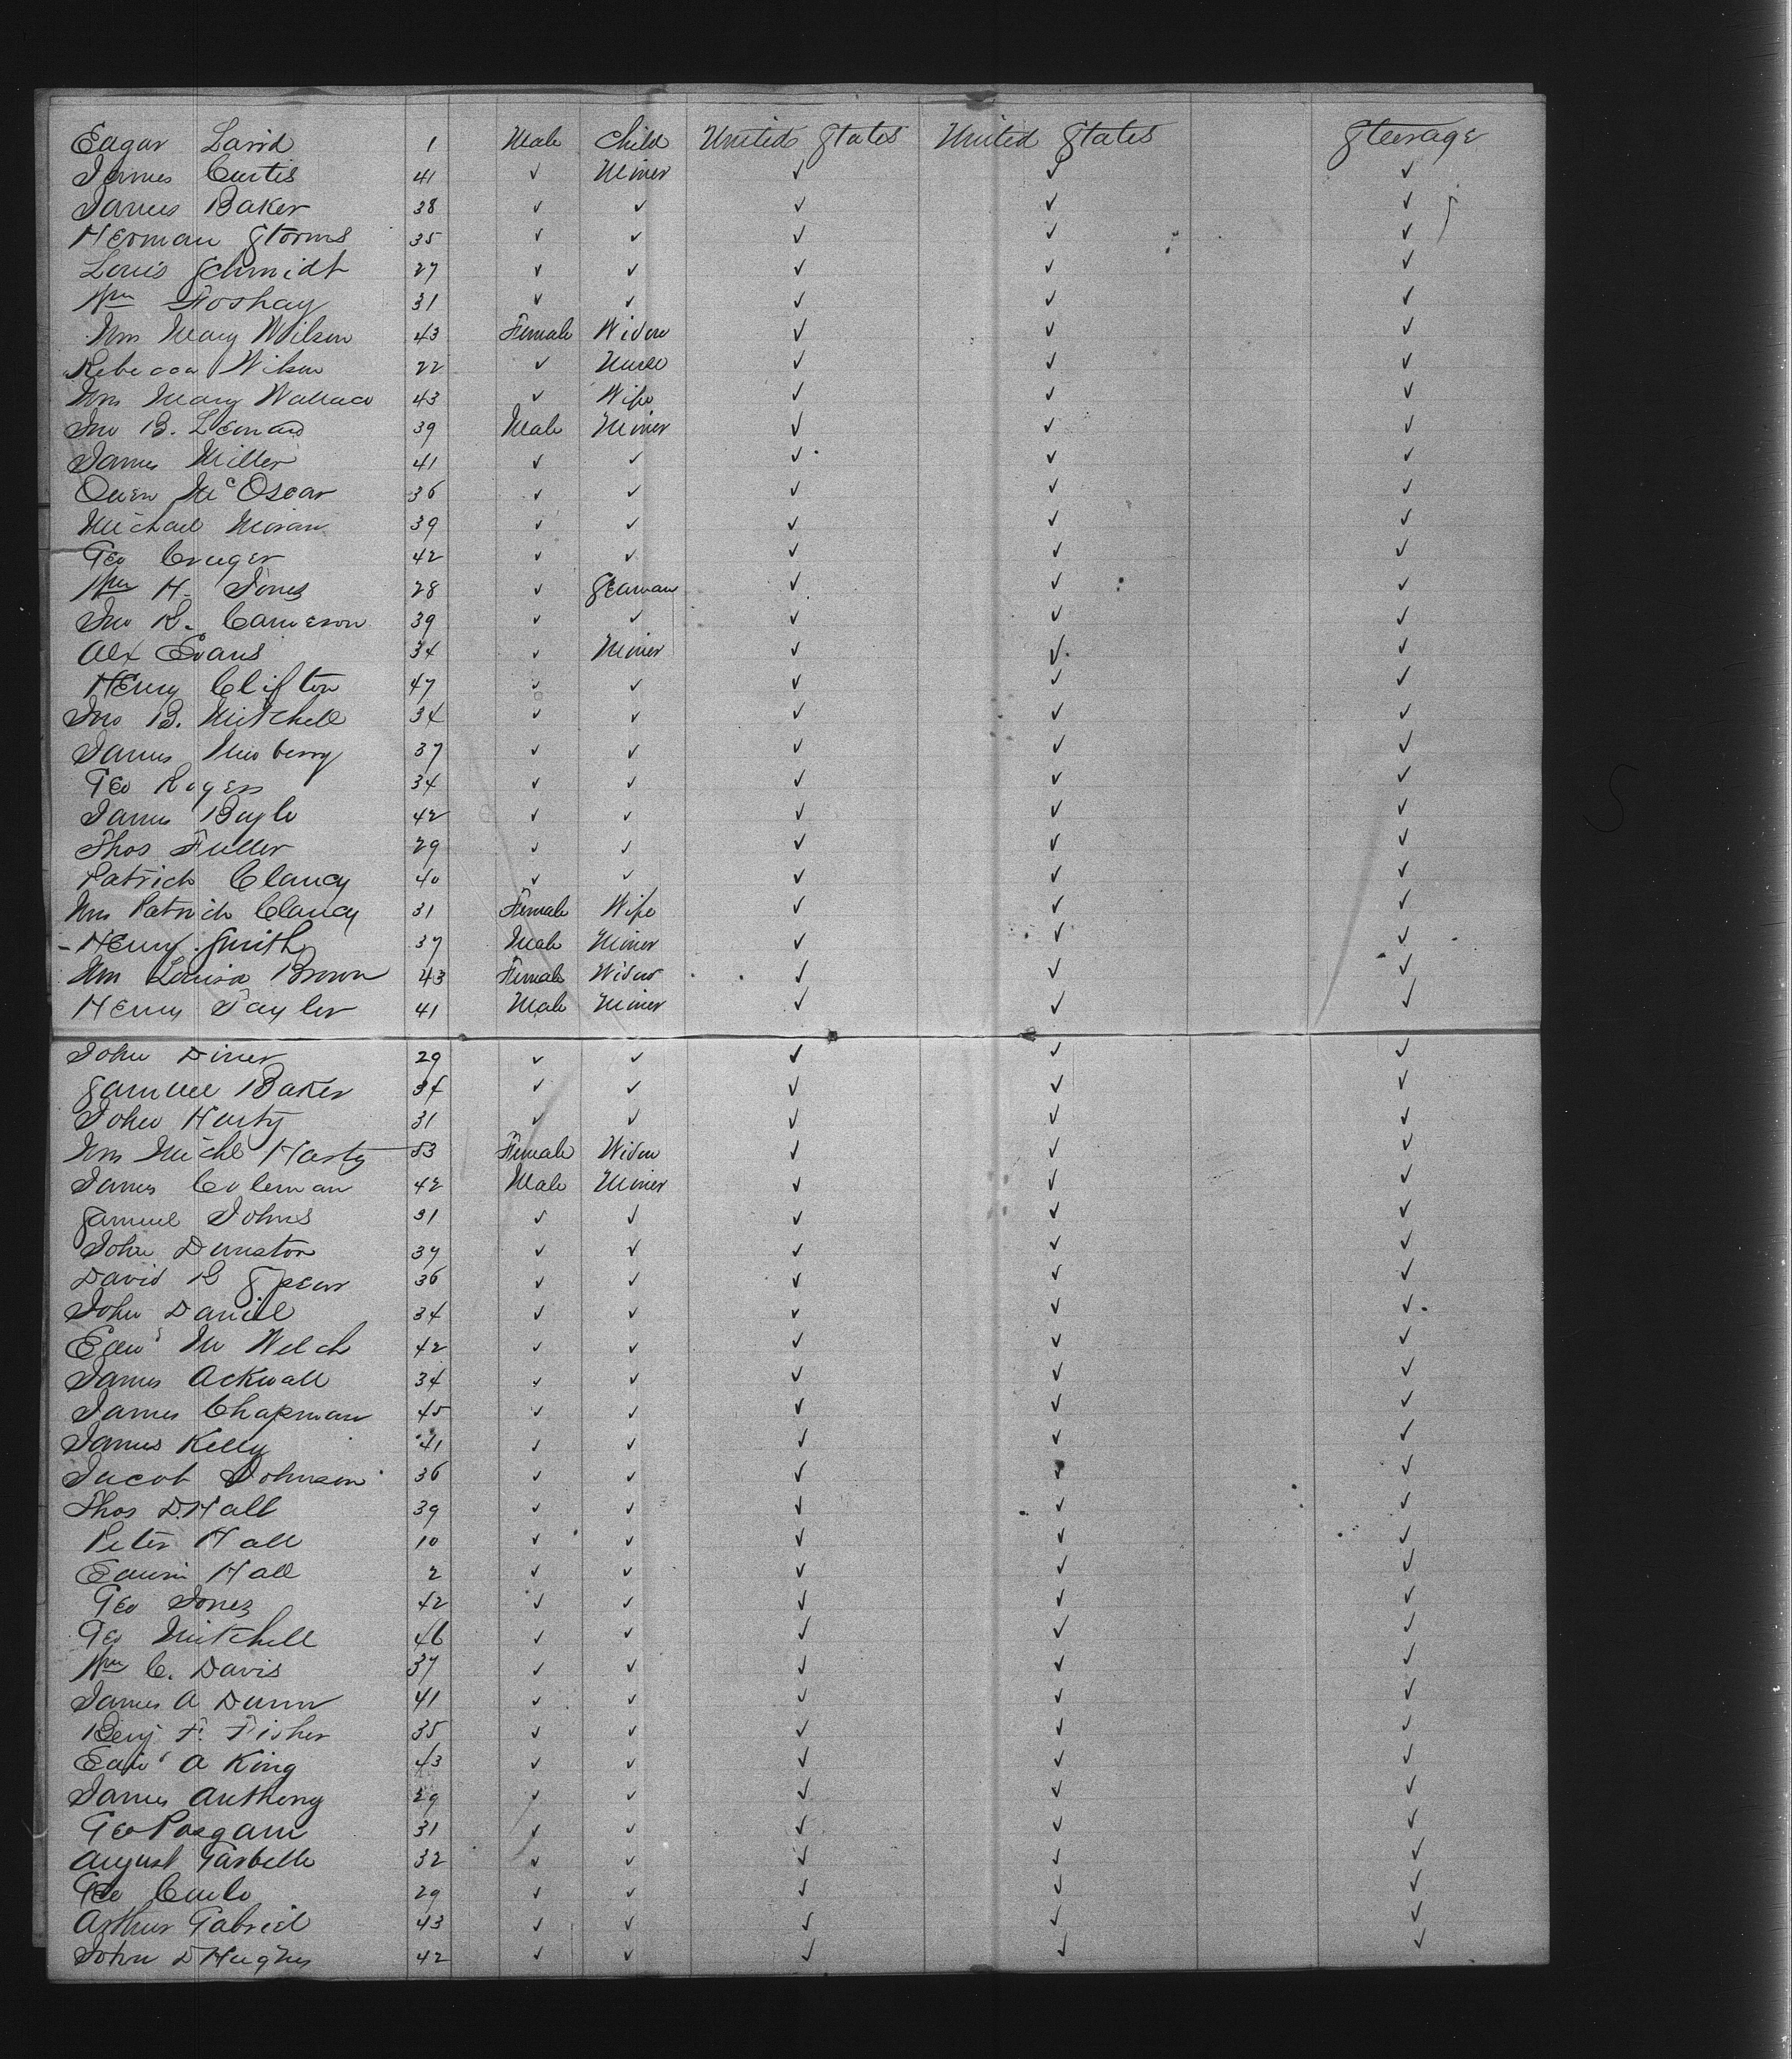 Edgar Laird 1 Male Child United States United States Steerage
James Curtis 41 ✓ Miner ✓ ✓ ✓
James Baker 38 ✓ ✓ ✓ ✓ ✓
Herman Storms 35 ✓ ✓ ✓ ✓ ✓
Louis Schmidt 27 ✓ ✓ ✓ ✓ ✓
Wm Foshay 31 ✓ ✓ ✓ ✓ ✓
Mrs Mary Wilson 43 Female Widow ✓ ✓ ✓
Rebecca Wilson 22 ✓ ✓ ✓ ✓
Mrs Mary Wallace 43 ✓ Wife ✓ ✓ ✓
Jno B. Leonard 39 Male Miner ✓ ✓ ✓
James Miller 41 ✓ ✓ ✓ ✓ ✓
Owen McOscar 36 ✓ ✓ ✓ ✓ ✓
Michael Moran 39 ✓ ✓ ✓ ✓ ✓
Geo Cruger 42 ✓ ✓ ✓ ✓ ✓
Wm H. Jones 28 ✓ Seaman ✓ ✓ ✓
Jno R. Cameron 39 ✓ ✓ ✓ ✓ ✓
Alex Evans 34 ✓ Miner ✓ ✓ ✓
Henry Clifton 47 ✓ ✓ ✓ ✓ ✓
Jno B. Mitchell 34 ✓ ✓ ✓ ✓ ✓
James Newberry 37 ✓ ✓ ✓ ✓ ✓
Geo Rogers 34 ✓ ✓ ✓ ✓ ✓
James Boyle 42 ✓ ✓ ✓ ✓ ✓
Thos Fuller 29 ✓ ✓ ✓ ✓ ✓
Patrick Clancy 40 ✓ ✓ ✓ ✓ ✓
Mrs Patrick Clancy 31 Female Wife ✓ ✓ ✓
Henry Smith 37 Male Miner ✓ ✓ ✓
Mrs Louisa Brown 43 Female Widow ✓ ✓ ✓
Henry Taylor 41 Male Miner ✓ ✓ ✓
John Diner 29 ✓ ✓ ✓ ✓ ✓
Samuel Baker 34 ✓ ✓ ✓ ✓ ✓
John Harty 31 ✓ ✓ ✓ ✓ ✓
Mrs Michl Harty 53 Female Widow ✓ ✓ ✓
James Coleman 42 Male Miner ✓ ✓ ✓
Samuel Johns 31 ✓ ✓ ✓ ✓ ✓
John Dunston 37 ✓ ✓ ✓ ✓ ✓
David B Spear 36 ✓ ✓ ✓ ✓ ✓
John Daniel 34 ✓ ✓ ✓ ✓ ✓
Edwd M Welch 42 ✓ ✓ ✓ ✓ ✓
James Ackwall 34 ✓ ✓ ✓ ✓ ✓
James Chapman 45 ✓ ✓ ✓ ✓ ✓
James Kelly 41 ✓ ✓ ✓ ✓ ✓
Jacob Johnson 36 ✓ ✓ ✓ ✓ ✓
Thos D. Hall 39 ✓ ✓ ✓ ✓ ✓
Peter Hall 10 ✓ ✓ ✓ ✓ ✓
Edwin Hall 2 ✓ ✓ ✓ ✓ ✓
Geo Jones 42 ✓ ✓ ✓ ✓ ✓
Geo Mitchell 46 ✓ ✓ ✓ ✓ ✓
Wm C. Davis 37 ✓ ✓ ✓ ✓ ✓
James A Dunn 41 ✓ ✓ ✓ ✓ ✓
Benj F. Fisher 35 ✓ ✓ ✓ ✓ ✓
Edwd A King 43 ✓ ✓ ✓ ✓ ✓
James Anthony 29 ✓ ✓ ✓ ✓ ✓
Geo Pasgam 31 ✓ ✓ ✓ ✓ ✓
August Garbelle 32 ✓ ✓ ✓ ✓ ✓
Geo 29 ✓ ✓ ✓ ✓ ✓
Arthur Gabriel 43 ✓ ✓ ✓ ✓ ✓
John D Hughes 42 ✓ ✓ ✓ ✓ ✓